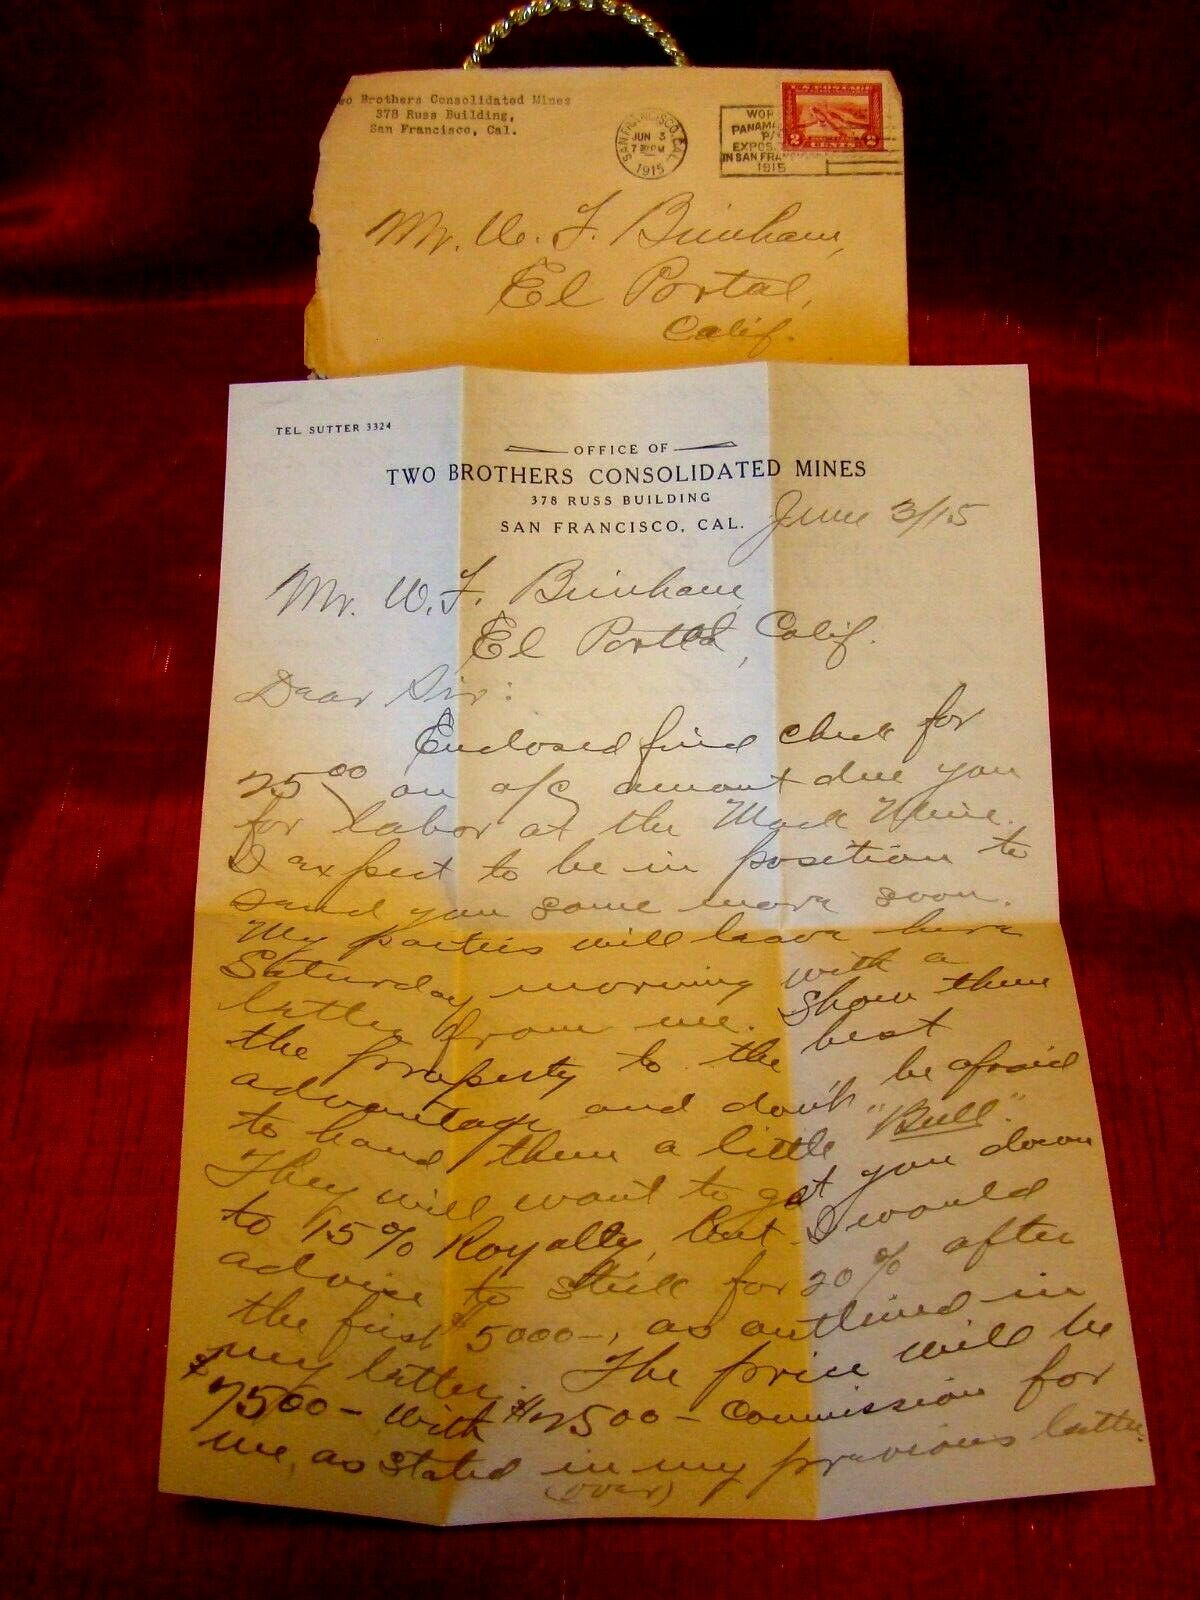 Two Brothers Consolidated Mines
378 Russ Building,
San Francisco, Cal.
SAN FRANCISCO, CAL.
JUN 3
7 PM
1915
PANAMA
IN SAN FRA
1915
U.S. POSTAGE
2 CENTS 2
Mr. W. F. Brinham,
El Portal,
Calif.
TEL. SUTTER 3324
OFFICE OF
TWO BROTHERS CONSOLIDATED MINES
378 RUSS BUILDING
SAN FRANCISCO, CAL.
June 3/15
Mr. W. F. Brinham,
El Portal, Calif.
Dear Sir:
Enclosed find check for
25 00 on a/c amount due you
for labor at the Mine.
I expect to be in position to
send you some more soon.
My parties will leave here
Saturday morning with a
letter from me. Show them
the property to the best
advantage and don't be afraid
to hand them a little "Bull".
They will want to get you down
to 15% Royalty, but I would
advise to stick for 20% after
the first $5000-, as outlined in
my letter. The price will be
$7500- with $2500- commission for
me, as stated in my previous letter.
(over)